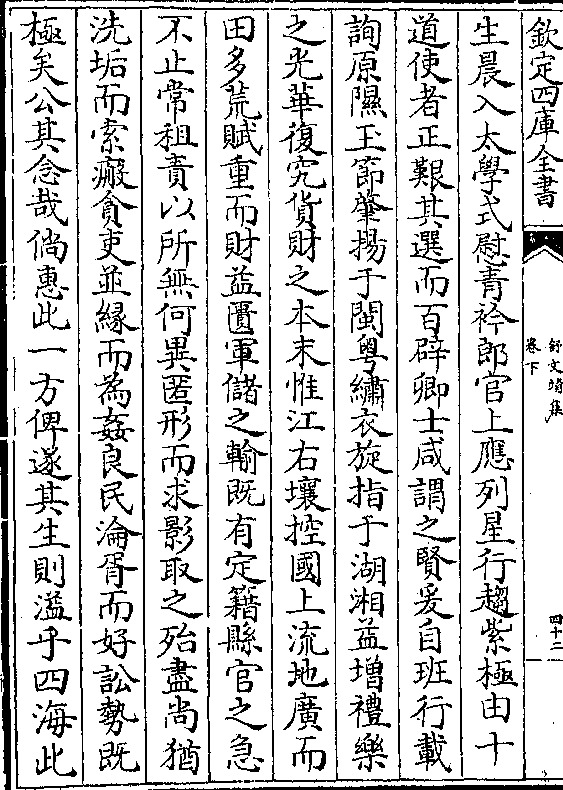 欽定四庫全書
舒文靖集
卷下
四十二
生晨入太學式慰青衿郎官上應列星行趨紫極由十
道使者正艱其選而百辟卿士咸謂之賢爰自班行載
詢原隰玉節肇揚于閩粤繡衣旋指于湖湘益增禮樂
之光華復究貨財之本末惟江右壤控國上流地廣而
田多荒賦重而財益匱軍儲之輸既有定籍縣官之急
不止常租責以所無何異匿形而求影取之殆盡尚猶
洗垢而索瘢貪吏並縁而為姦良民淪胥而好訟勢既
極矣公其念哉倘惠此一方俾遂其生則溢乎四海此